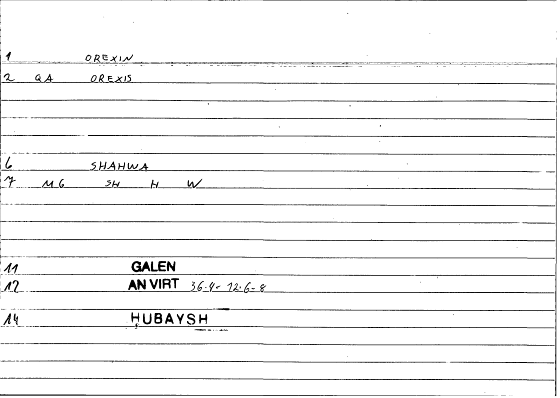 1 OREXIN
2 QA OREXIS
6 SHAHWA
7 MG SH H W
11 GALEN
12 AN VIRT 36.4- 12.6-8
14 HUBAYSH